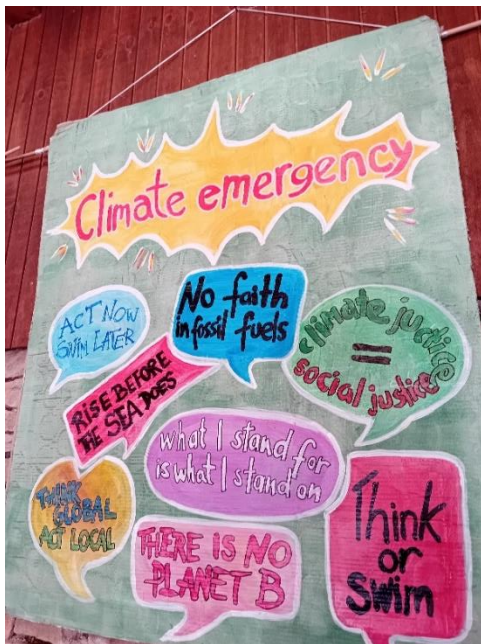 Climate emergency
ACT NOW
SWIM LATER
No faith
in fossil fuels
climate justice
=
social justice
RISE BEFORE
THE SEA DOES
what I stand for
is what I stand on
THINK
GLOBAL
ACT LOCAL
THERE IS NO
PLANET B
Think
or
Swim